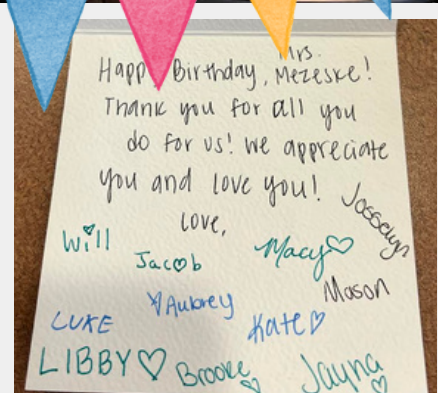 Happy Birthday, Mrs. Mezeske!
Thank you for all you
do for us! We appreciate
you and love you!
Love,
Josselyn
Will
Jacob
Macy
Mason
Aubrey
LUKE
Kate
LIBBY
Brooke
Jayna